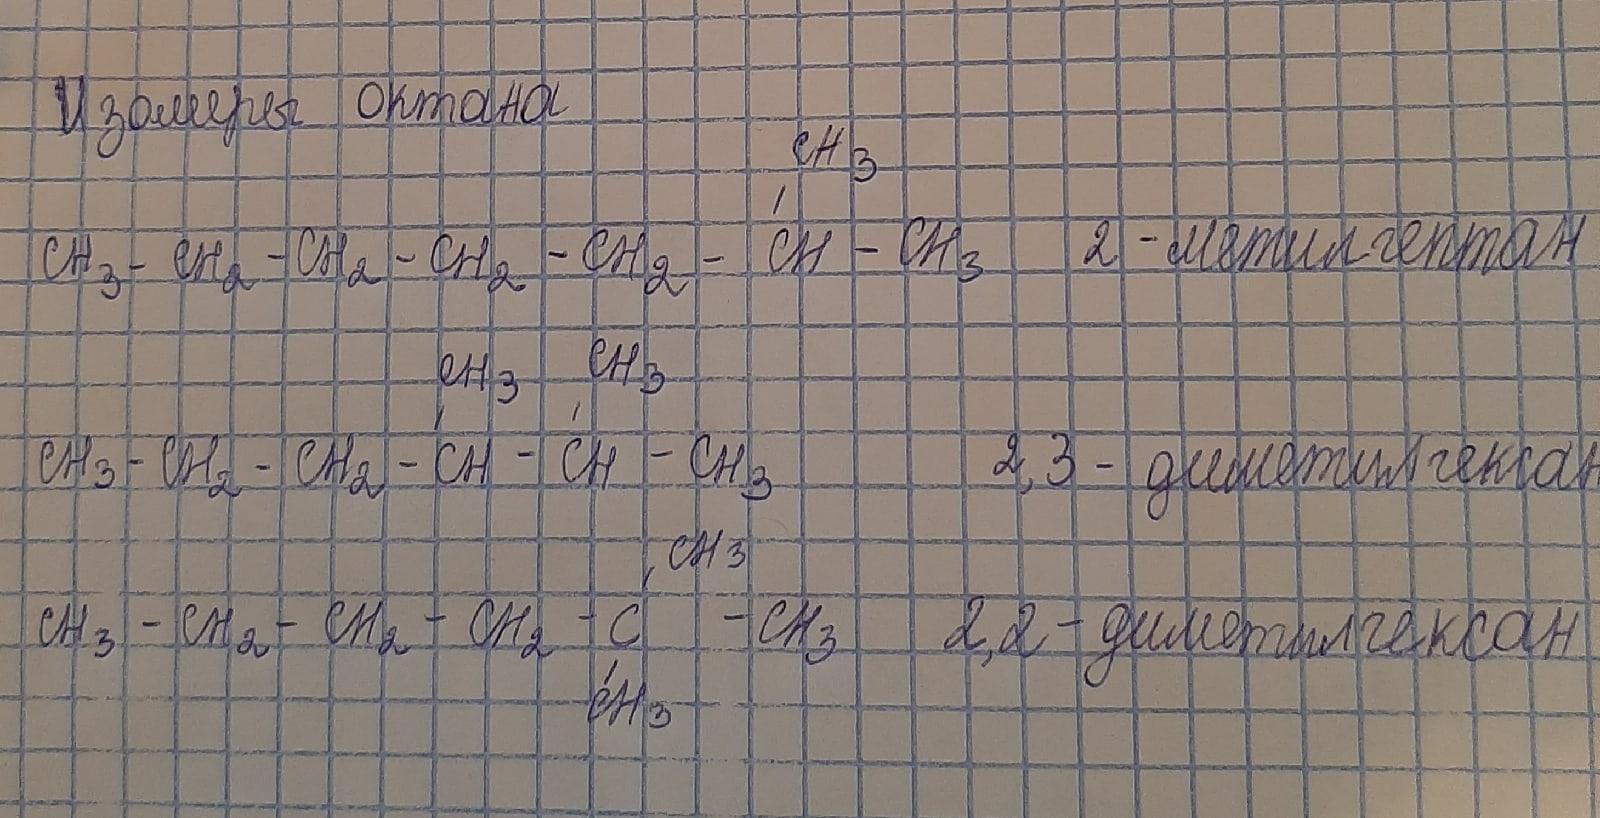 Изомеры октана
CH3
CH3 - CH2 - CH2 - CH2 - CH2 - CH - CH3 2 - метилгептан
CH3 CH3
CH3 - CH2 - CH2 - CH - CH - CH3 2,3 - диметилгексан
CH3
CH3 - CH2 - CH2 - CH2 - C - CH3 2,2 - диметилгексан
CH3